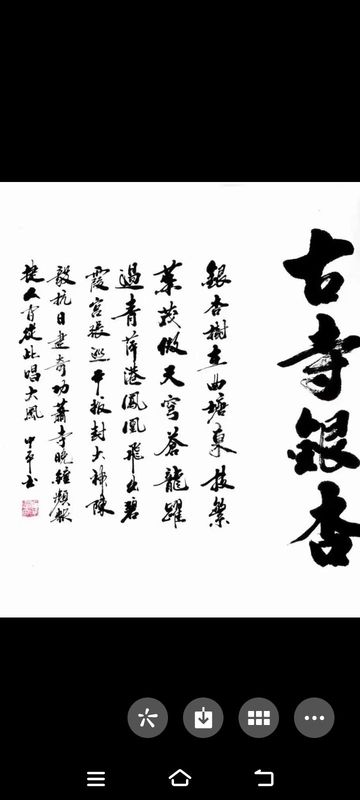 古寺銀杏
銀杏樹立曲塘東枝繁
葉茂傲天穹蒼龍躍
過青萍港鳳凰飛出碧
霞宮張巡平叛封大神陳
毅抗日建奇功蕭寺晚鐘頻報
捷人育從此唱大風 中平書